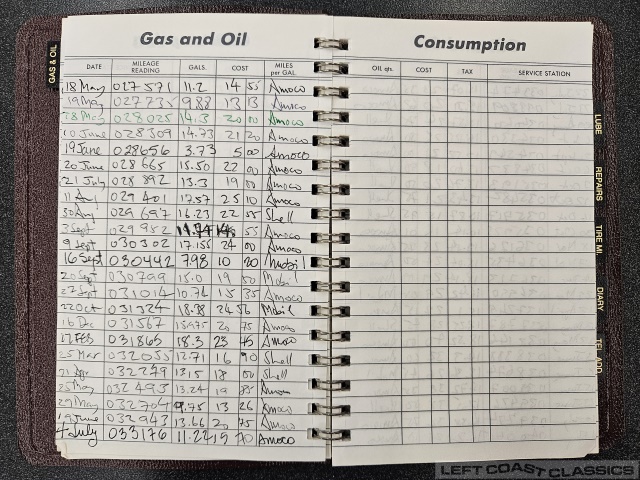 Gas and Oil
Consumption
GAS & OIL
DATE MILEAGE READING GALS. COST MILES per GAL.
OIL qts. COST TAX SERVICE STATION
18 May 027571 11.2 14 55 Amoco
19 May 027735 9.88 13 13 Amoco
28 May 028025 14.3 20 00 Amoco
10 June 028309 14.73 21 20 Amoco
19 June 028656 3.73 5 00 Amoco
20 June 028665 15.50 22 00 Amoco
21 July 028892 13.3 19 00 Amoco
11 029401 17.57 25 10 Amoco
30 Aug 029697 16.23 22 55 Shell
3 Sept 029952 55 Amoco
9 Sept 030302 17.156 24 00 Amoco
16 Sept 030442 798 10 20 Mobil
20 Sept 030799 15.0 19 50 Mobil
27 Sept 031014 10.76 15 35 Amoco
22 Oct 031324 18.38 24 56 Mobil
16 Dec 031567 20 75 Amoco
17 FEB 031865 18.3 23 45 Amoco
25 Mar 032055 12.71 16 90 Shell
21 Apr 032249 13.15 18 00 Shell
25 May 032493 13.24 19 85 Amoco
29 May 032704 9.75 13 26 Amoco
19 June 032943 13.66 20 75 Amoco
4 July 033176 11.22 15 70 Amoco
LUBE
REPAIRS
TIRE MI.
DIARY
TEL. ADD.
LEFT COAST CLASSICS